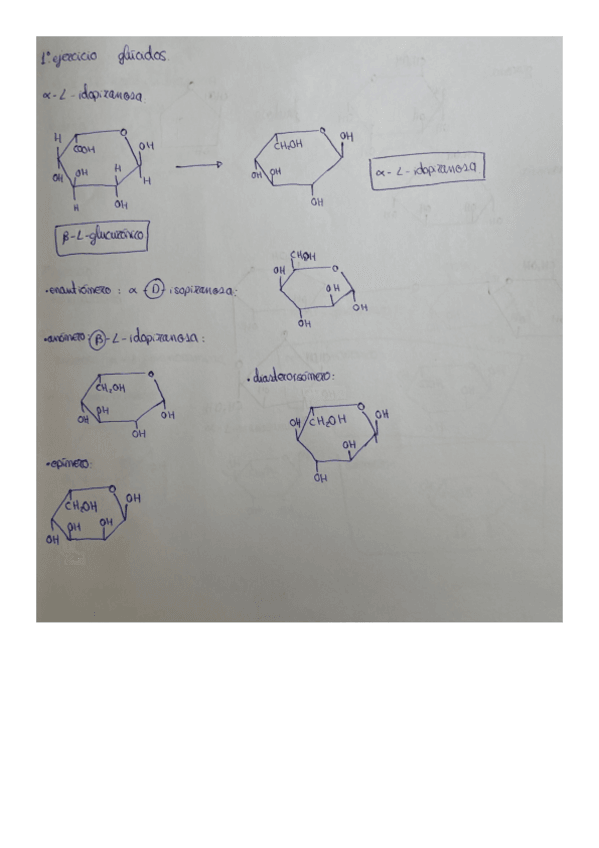 1º ejercicio glúcidos.
α-L-idopiranosa
H O OH
COOH
OH OH H H
H OH
O OH
CH₂OH
OH OH
OH
α-L-idopiranosa
β-L-glucurónico
CH₂OH
OH O
OH OH
OH
•enantiómero: α-D-isopiranosa:
•anómero: β-L-idopiranosa:
O
CH₂OH
OH OH OH
OH
•diasteroisómero:
O OH
OH CH₂OH
OH
OH
•epímero:
O OH
CH₂OH
OH OH
OH